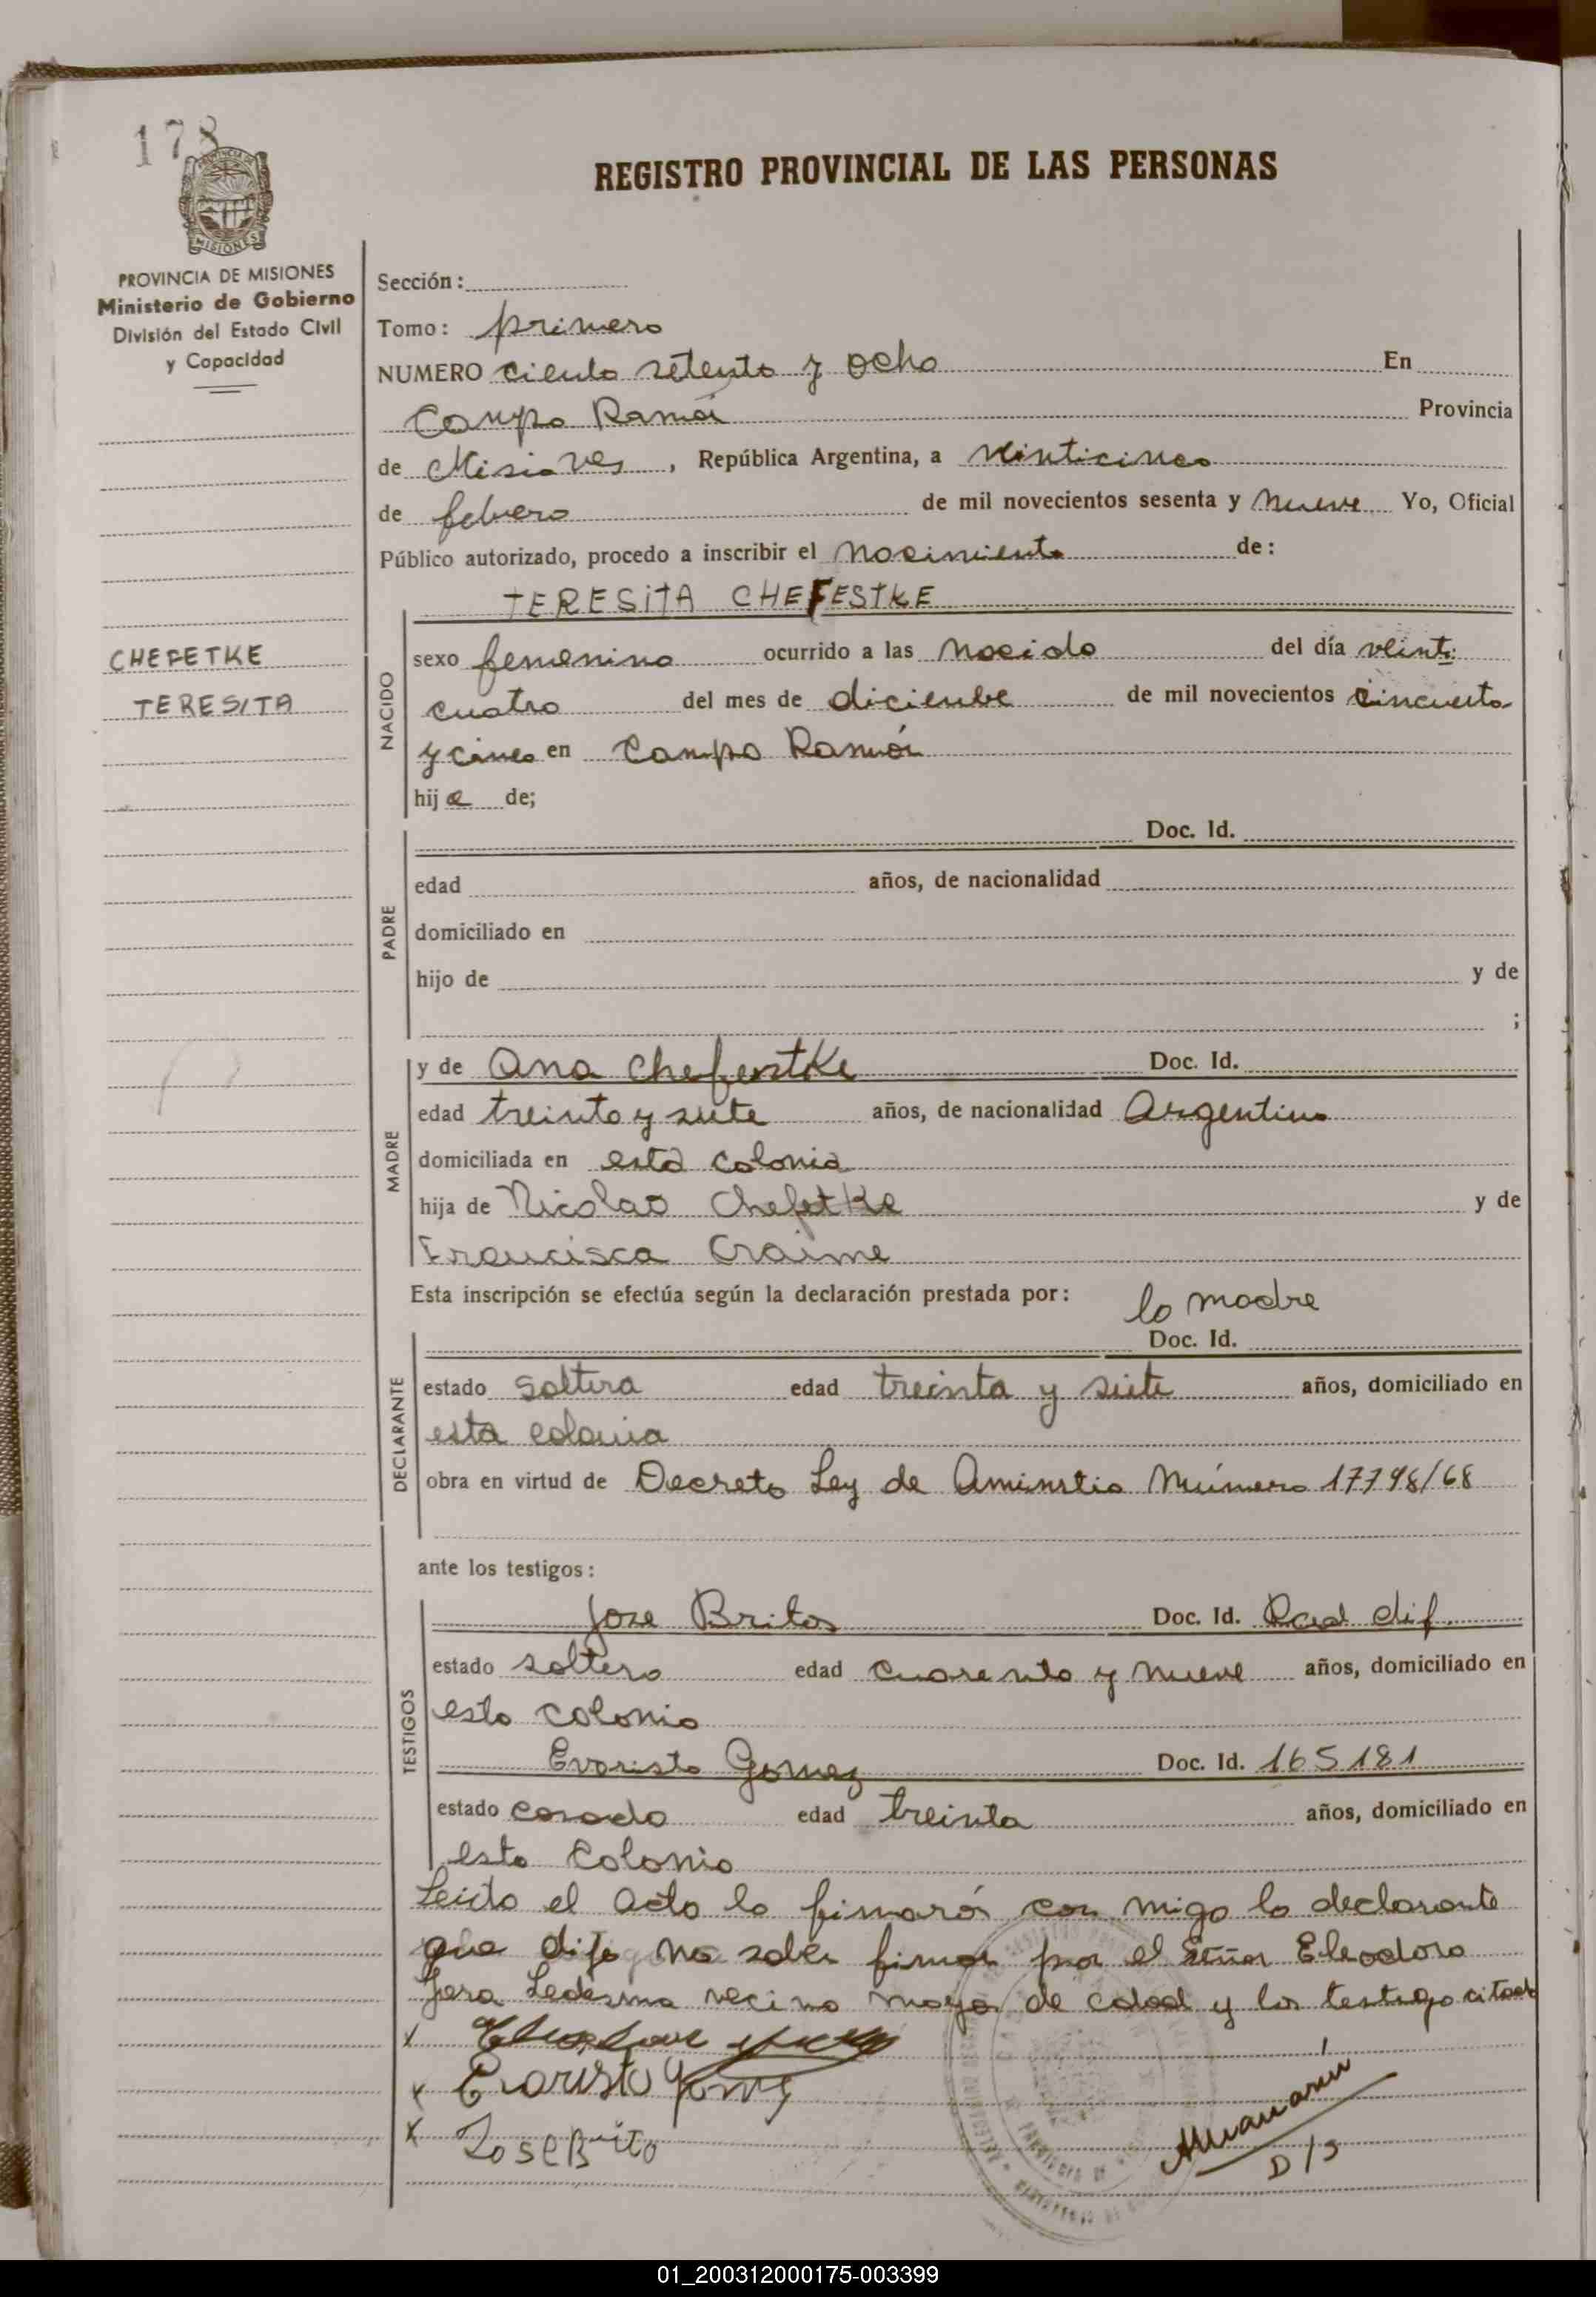 178
REGISTRO PROVINCIAL DE LAS PERSONAS
PROVINCIA DE MISIONES
Ministerio de Gobierno
División del Estado Civil
y Capacidad
Sección:
Tomo: primero
NUMERO ciento setenta y ocho En
Campo Ramón Provincia
de Misiones, República Argentina, a veinticinco
de febrero de mil novecientos sesenta y nueve Yo, Oficial
Público autorizado, procedo a inscribir el nacimiento de:
TERESITA CHEFESTKE
CHEFETKE
TERESITA
NACIDO
sexo femenino ocurrido a las nacido del día veinti
cuatro del mes de diciembre de mil novecientos cincuenta
y cinco en Campo Ramón
hija de;
PADRE
Doc. Id.
edad años, de nacionalidad
domiciliado en
hijo de y de
;
MADRE
y de Ana Chefestke Doc. Id.
edad treinta y siete años, de nacionalidad Argentina
domiciliada en esta colonia
hija de Nicolao Chefetke y de
Francisca Craime
Esta inscripción se efectúa según la declaración prestada por: la madre
DECLARANTE
Doc. Id.
estado soltera edad treinta y siete años, domiciliado en
esta colonia
obra en virtud de Decreto Ley de Aminstia Número 17798/68
ante los testigos:
TESTIGOS
Jose Britos Doc. Id.
estado soltero edad cuarenta y nueve años, domiciliado en
esta colonia
Evaristo Gomez Doc. Id. 165181
estado casado edad treinta años, domiciliado en
esta Colonia
Leida el acta la firmarón con migo la declarante
que dijo no saber firmar por el Señor Eleodoro
Jara Ledesma vecino mayor de edad y los testigo citad
x
x Evaristo Gomez
x Jose Brito
D/S
01_200312000175-003399